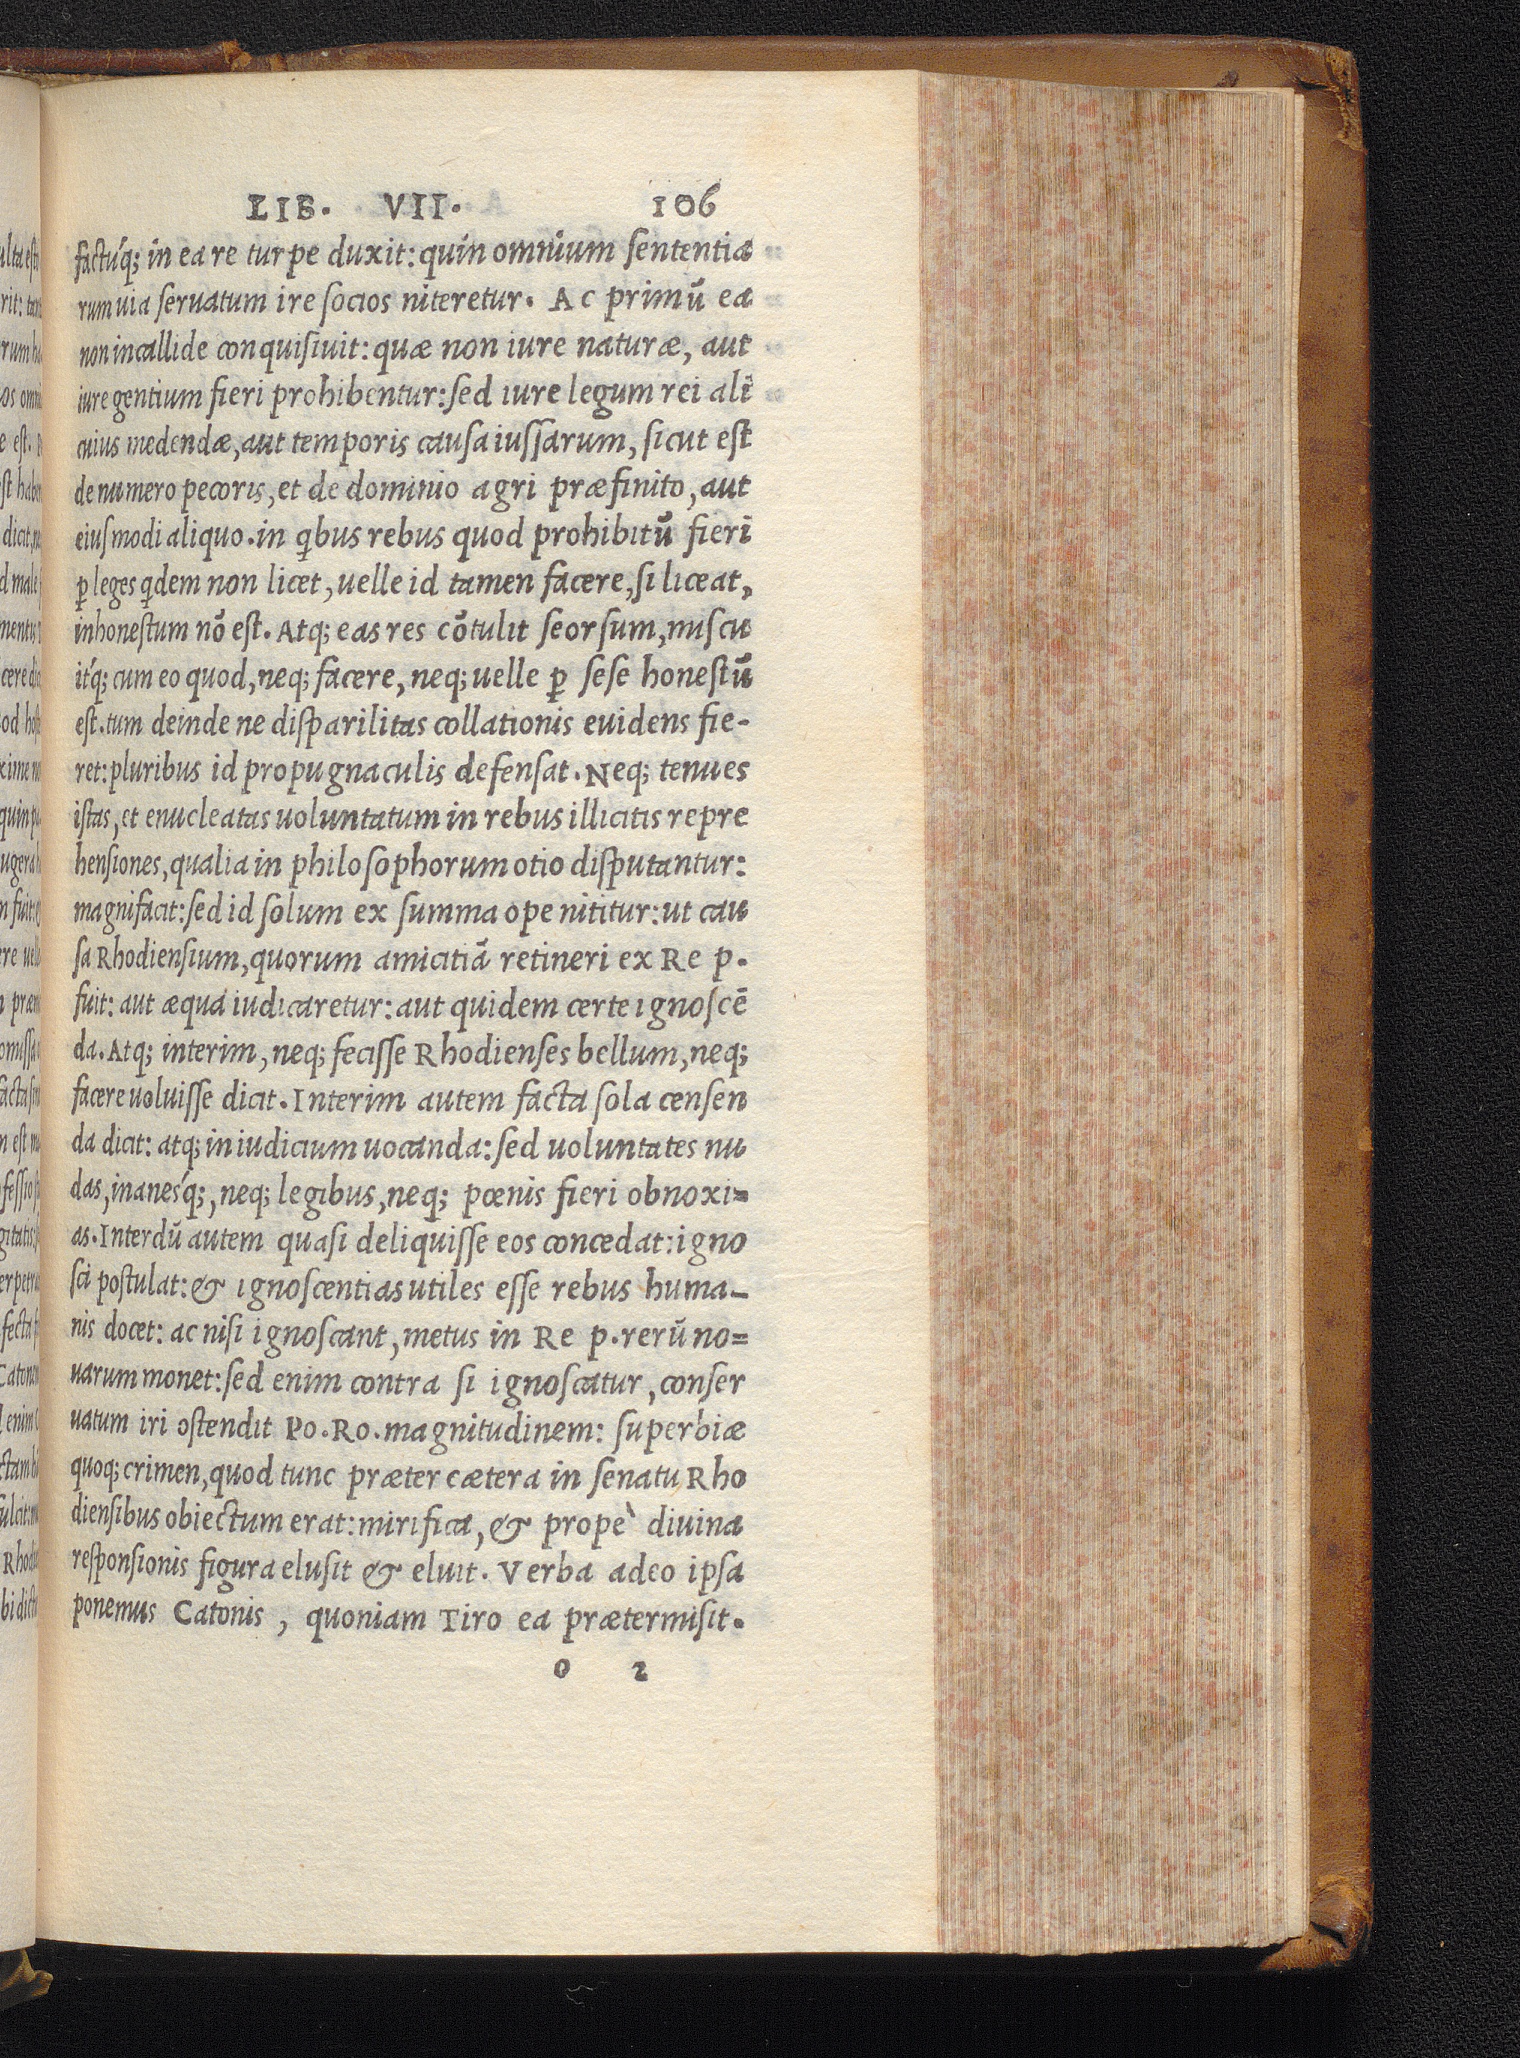 LIB. VII. 106
factu´q; in ea re turpe duxit: quin omnium sententia
rum uia seruatum ire socios niteretur. Ac primū ea
non incallide conquisiuit: quæ non iure naturæ, aut
iure gentium fieri prohibentur: sed iure legum rei ali
cuius medendæ, aut temporis causa iussarum, sicut est
de numero pecoris, et de dominio agri præfinito, aut
eiusmodi aliquo. in qbus rebus quod prohibitū fieri
ꝑ leges qdem non licet, uelle id tamen facere, si liceat,
inhonestum nō est. Atq; eas res cōtulit seorsum, miscu
it´q; cum eo quod, neq; facere, neq; uelle ꝑ sese honestū
est. tum deinde ne disparilitas collationis euidens fie-
ret: pluribus id propugnaculis defensat. Neq; tenues
istas, et enucleatas uoluntatum in rebus illicitis repre
hensiones, qualia in philosophorum otio disputantur:
magnifacit: sed id solum ex summa ope nititur: ut cau
sa Rhodiensium, quorum amicitiā retineri ex Re p.
fuit: aut æqua iudicaretur: aut quidem certe ignoscē
da. Atq; interim, neq; fecisse Rhodienses bellum, neq;
facere uoluisse dicit. Interim autem facta sola censen
da dicit: atq; in iudicium uocanda: sed uoluntates nu
das, inanes´q;, neq; legibus, neq; pœnis fieri obnoxi=
as. Interdū autem quasi deliquisse eos concedat: igno
sci postulat: & ignoscentias utiles esse rebus huma-
nis docet: ac nisi ignoscant, metus in Re p. rerū no=
uarum monet: sed enim contra si ignoscatur, conser
uatum iri ostendit Po. Ro. magnitudinem: superbiæ
quoq; crimen, quod tunc præter cætera in senatu Rho
diensibus obiectum erat: mirifica, & propè diuina
responsionis figura elusit & eluit. Verba adeo ipsa
ponemus Catonis, quoniam Tiro ea prætermisit.
o 2